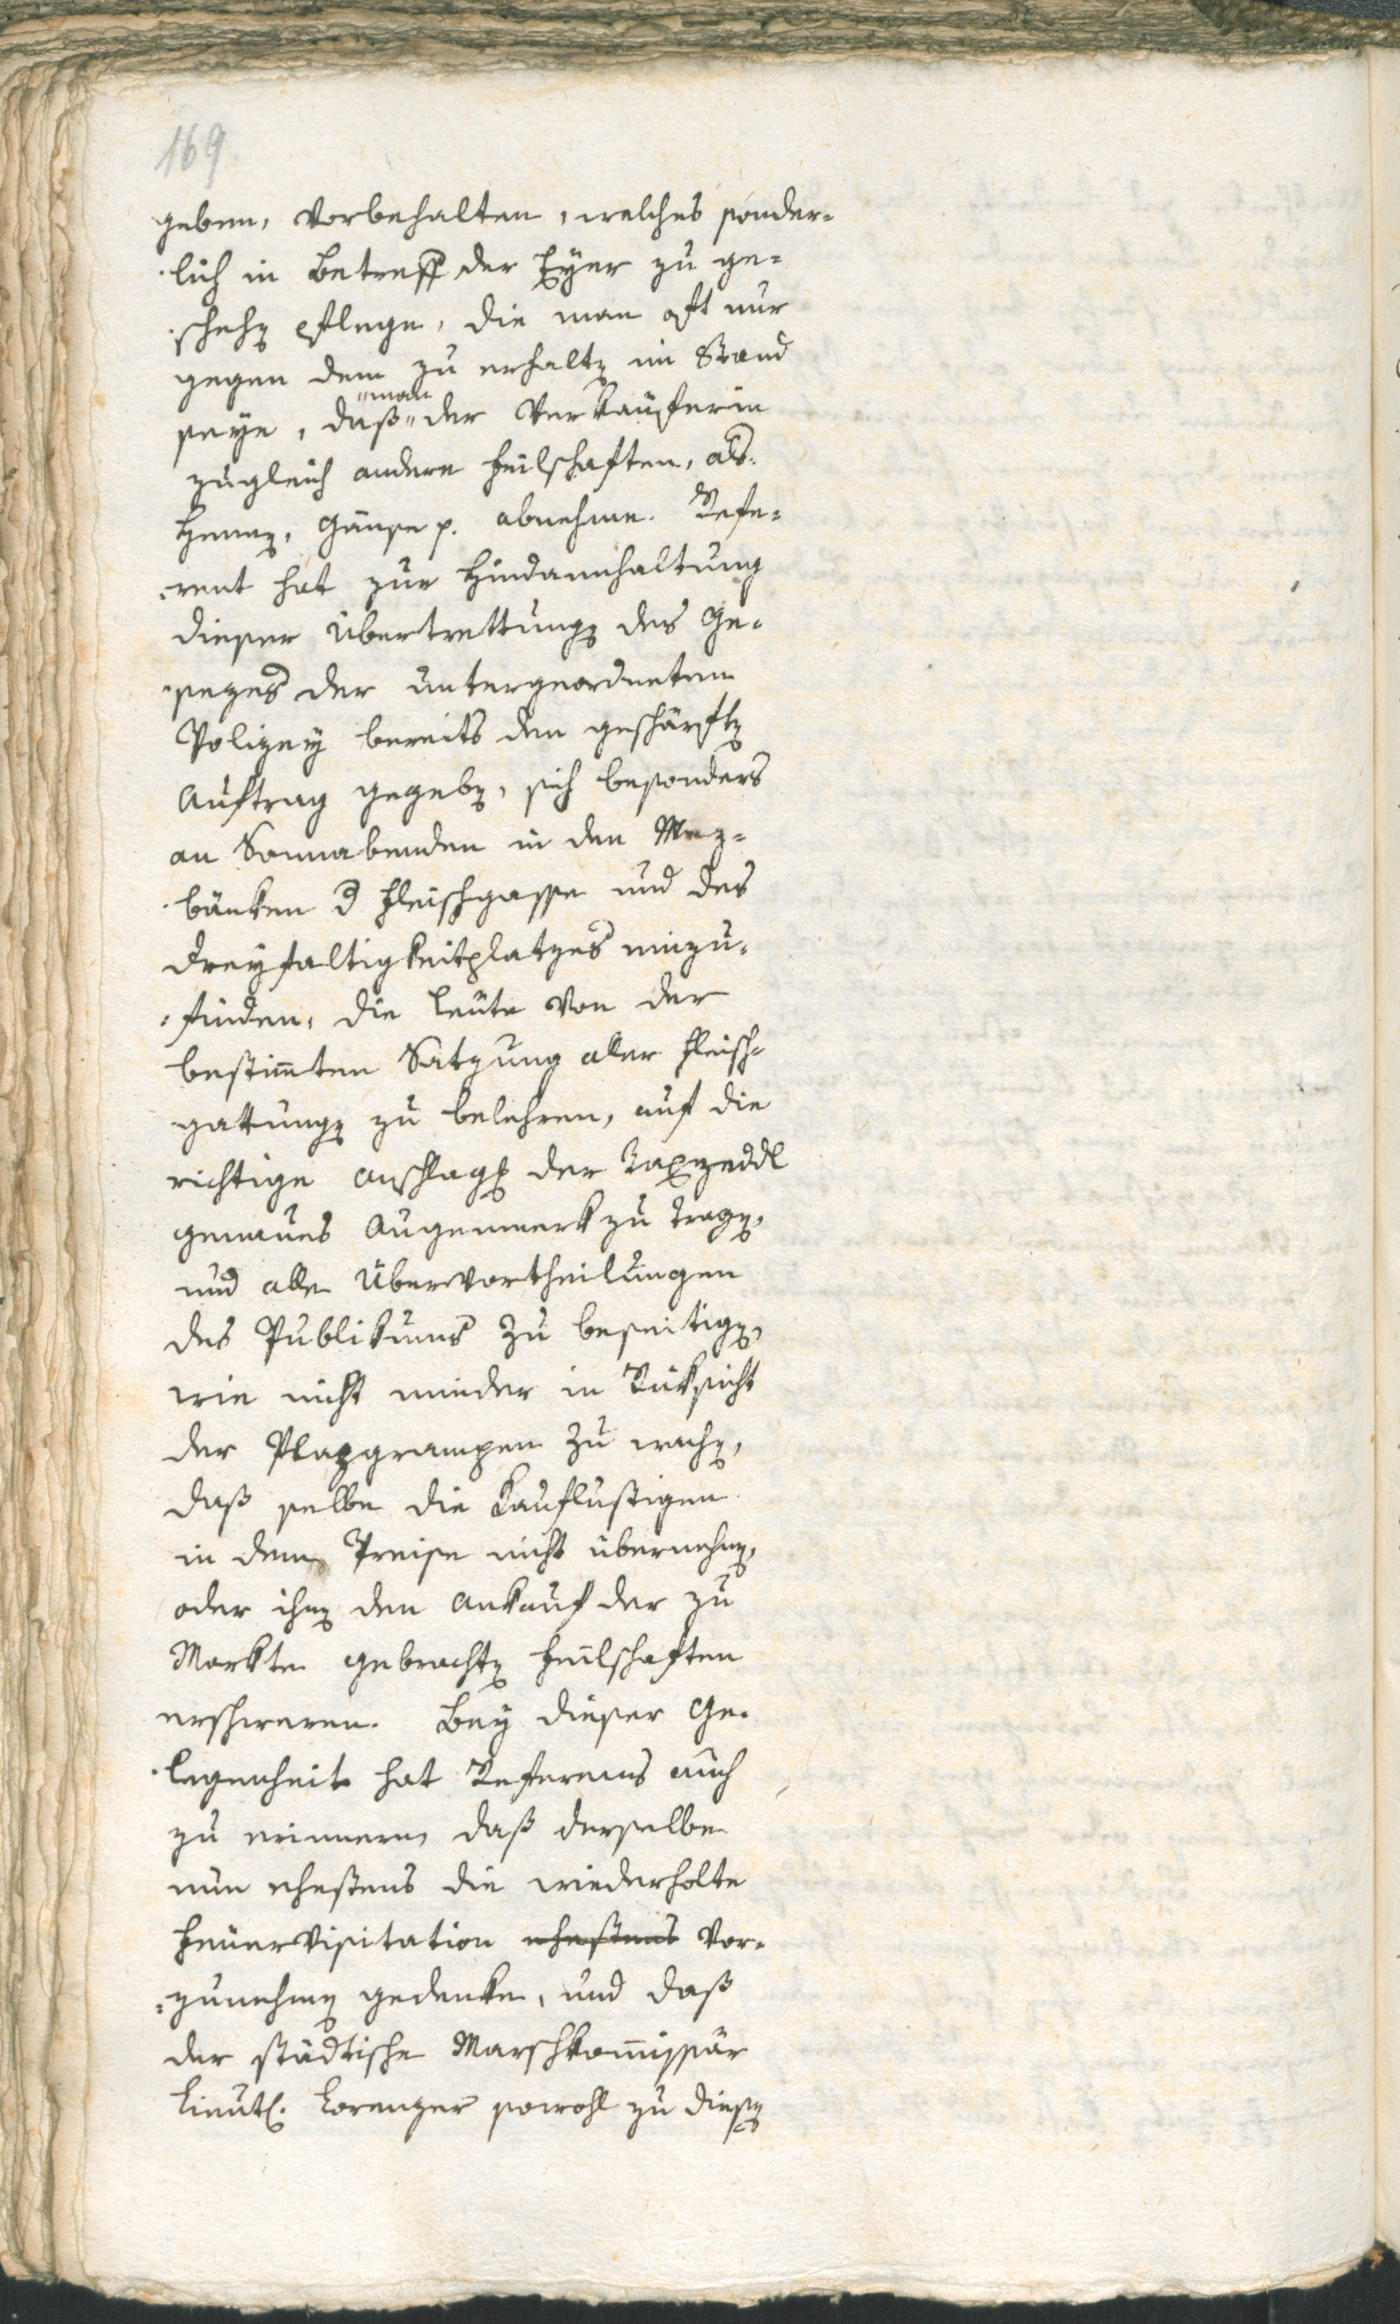 169
geben, vorbehalten, welches sonder-
-lich in Betreff der Eyer zu ge-
-schehen pflege, die man oft nur
gegen dem zu erhalten im Stand
man
seye, daß der Verkäuferin
zugleich andere Feilschaften, als
Henen, Gänse p. abnehme. Refe-
-rent hat zur Hindannhaltung
dieser Übertrettungen des Ge-
-sezes der untergeordneten
Polizey bereits den geschärften
Auftrag gegeben, sich besonders
an Sonnabenden in den Mez-
-bänken d Fleischgasse und des
Dreyfaltigkeitplatzes einzu-
-finden, die Leute von der
bestimten Satzung aller Fleisch-
gattungen zu belehren, auf die
richtige Anschlag der Taxzeddl
genaues Augenmerk zu tragen,
und alle Übervortheilungen
des Publikums zu beseitigen,
wie nicht minder in Rüksicht
der Plazgrampen zu wachen,
daß selbe die Kauflustigen
in dem Preise nicht übernehmen,
oder ihnen den Ankauf der zu
Markte gebrachten Feilschaften
erschweren. Bey dieser Ge-
-legenheit hat Referens auch
zu erinnern, daß derselbe
nun ehestens die wiederholte
Feuervisitation ehestens vor-
-zunehmen gedenke, und daß
der städtische Marschkomissär
Lieut. Lorenzer sowohl zu diesen